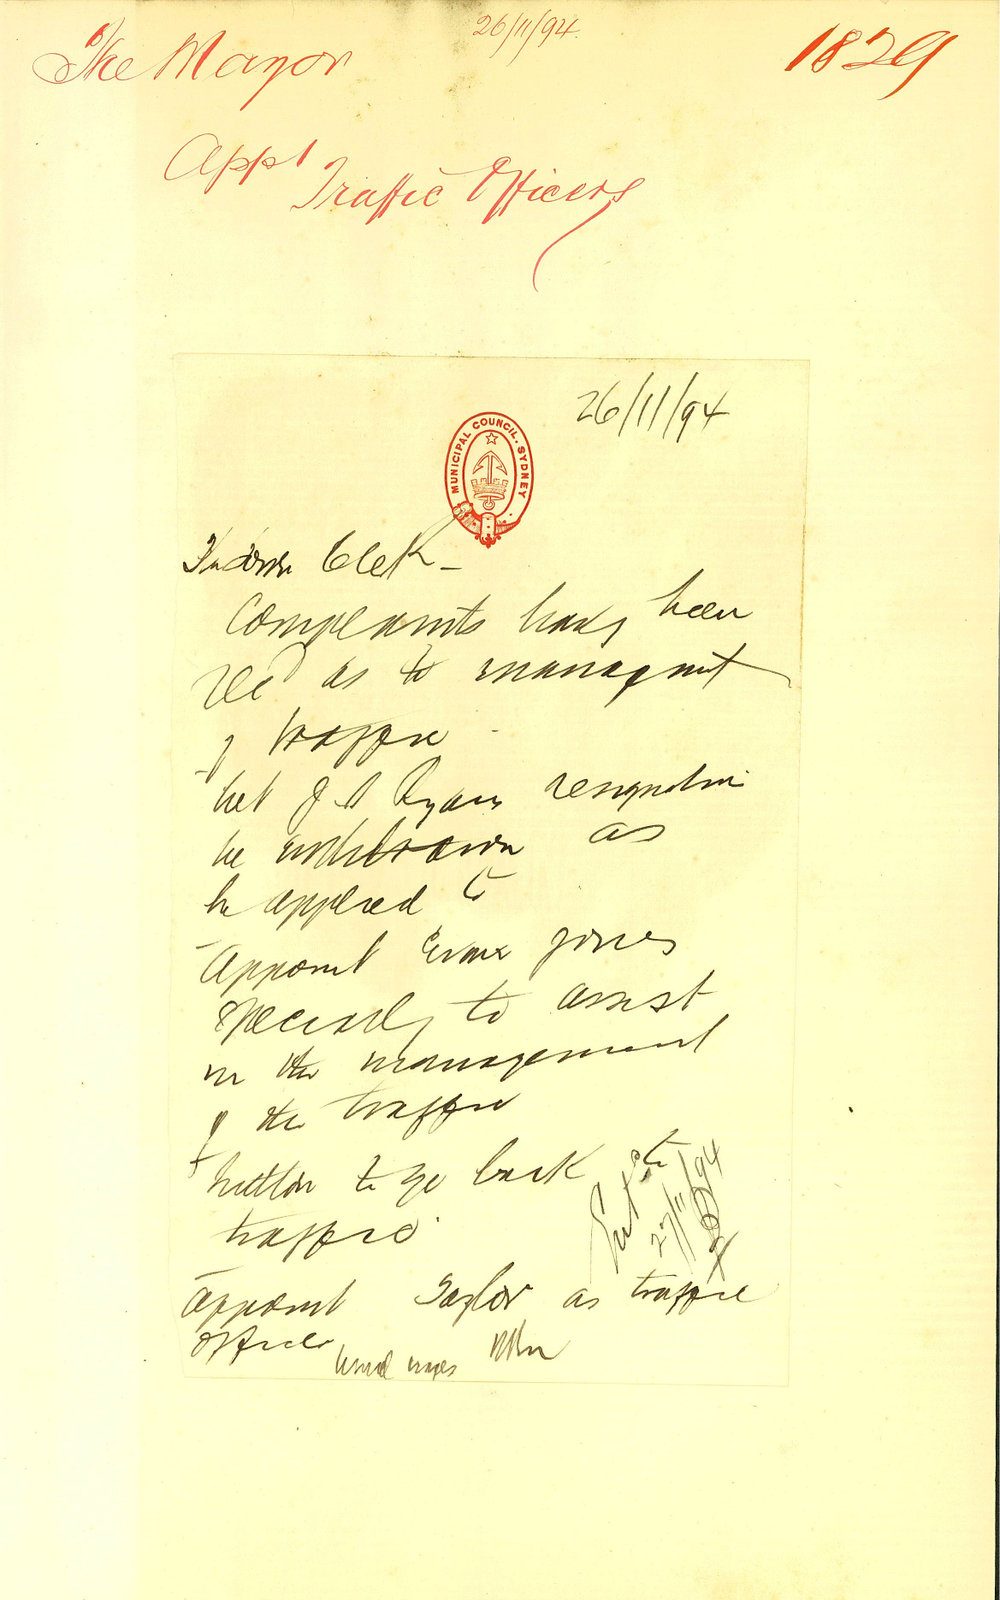 The Mayor
26/11/94.
1829
Appt
Traffic Officers
26/11/94
MUNICIPAL COUNCIL. SYDNEY
Town Clerk -
Complaints having been
recd as to managmt
of traffic
Let J A Ryans resignation
be withdrawn as
he applied to
Appoint Evan Jones
specially to assist
in the management
of the traffic
Hutton to go back to
traffic
Appoint Taylor as traffic
officer
Usual wages
27/11/94